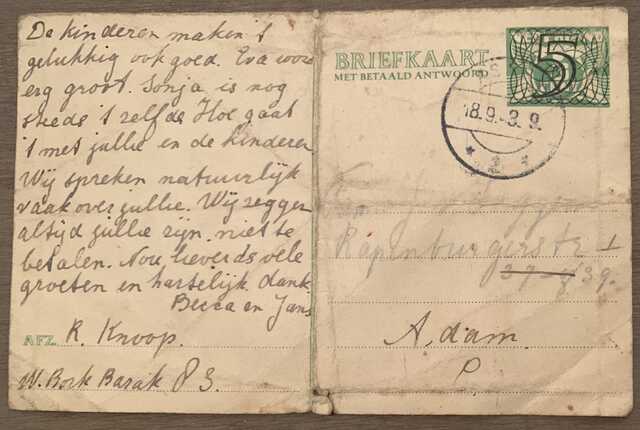 De kinderen maken 't
gelukkig ook goed. Eva word
erg groot. Sonja is nog
steeds 't zelfde Hoe gaat
't met jullie en de kinderen
Wij spreken natuurlijk
vaak over jullie. Wij zeggen
altijd jullie zijn niet te
betalen. Nou lieverds vele
groeten en hartelijk dank
Becca en Jans
AFZ. R. Knoop.
W. Bork Barak 83.
BRIEFKAART
MET BETAALD ANTWOORD
5
18.9.-3.9.
2
Rapenburgerstr 1
37-8 39.
A,dam.